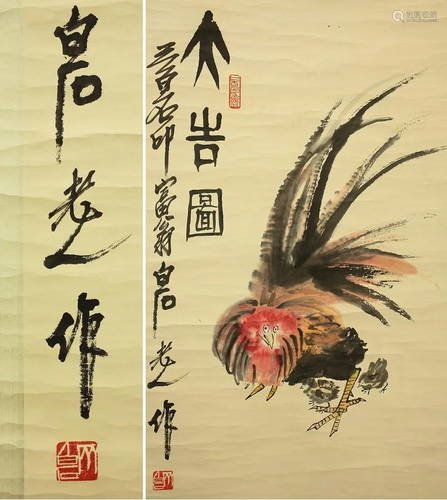 白石老人作
大吉圖
三百石印富翁白石老人作